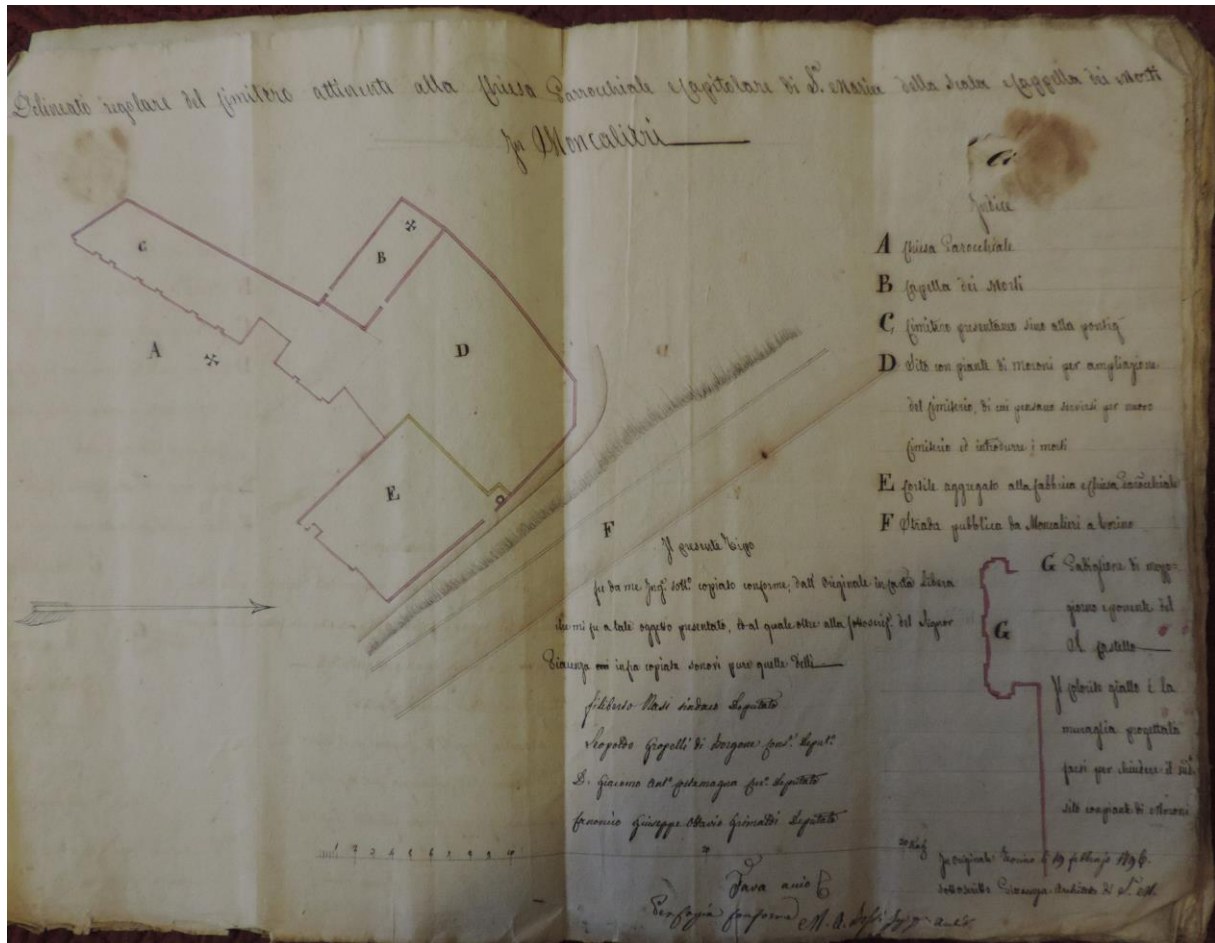 Delineato regolare del Cimitero attinente alla Chiesa Parrocchiale e Capitolare di S.ª Maria della Scala e Cappella dei Morti
In Moncalieri
Indice
A Chiesa Parocchiale
B Capella dei Morti
C Cimitero presentaneo sino alla
D Sito con piante di Moroni per ampliazione
del Cimiterio, di cui pensano servirsi per nuovo
Cimiterio et introdurre i morti
E Cortile aggregato alla fabbrica e Chiesa Parocchiale
F Strada pubblica da Moncalieri a Torino
G di mezzo-
giorno e ponente del
R. Castello
Il colorito giallo è la
muraglia progettata
farsi per chiudere il
sito con piante di Moroni
C
B
A
D
E
F
G
Il presente Tipo
fu da me Ing.e sott.o copiato conforme, dall' Originale in carta Libera
che mi fu a tale oggetto presentato, et al quale oltre alla del Signor
Piacenza infra copiata sonovi pure quelle delli
Filiberto sindaco Deputato
Leopoldo Gropelli di Borgone Deput.o
D. Giacomo Ant.o Costamagna Deputato
Canonico Giuseppe Ottavio Grimaldi Deputato
1 2 3 4 5 6 7 8 9 10 20
In originale Torino li 19 febbrajo
sottoscritto Piacenza di S. M.
Per Copia Conforme